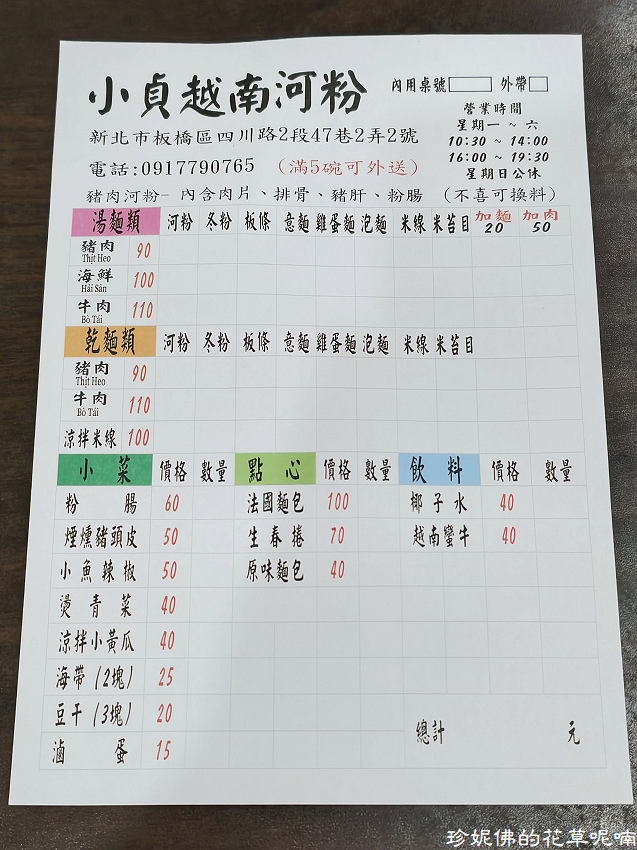 小貞越南河粉 內用桌號 外帶
營業時間
新北市板橋區四川路2段47巷2弄2號 星期一 ~ 六
10:30 ~ 14:00
電話:0917790765 (滿5碗可外送) 16:00 ~ 19:30
星期日公休
豬肉河粉- 內含肉片、排骨、豬肝、粉腸 (不喜可換料)
湯麵類 河粉 冬粉 板條 意麵 雞蛋麵 泡麵 米線 米苔目 加麵 20 加肉 50
豬肉 90
Thịt Heo
海鮮 100
Hải Sản
牛肉 110
Bò Tái
乾麵類 河粉 冬粉 板條 意麵 雞蛋麵 泡麵 米線 米苔目
豬肉 90
Thịt Heo
牛肉 110
Bò Tái
涼拌米線 100
小菜 價格 數量 點心 價格 數量 飲料 價格 數量
粉腸 60 法國麵包 100 椰子水 40
煙燻豬頭皮 50 生春捲 70 越南蠻牛 40
小魚辣椒 50 原味麵包 40
燙青菜 40
涼拌小黃瓜 40
海帶(2塊) 25
豆干(3塊) 20
總計 元
滷蛋 15
珍妮佛的花草呢喃